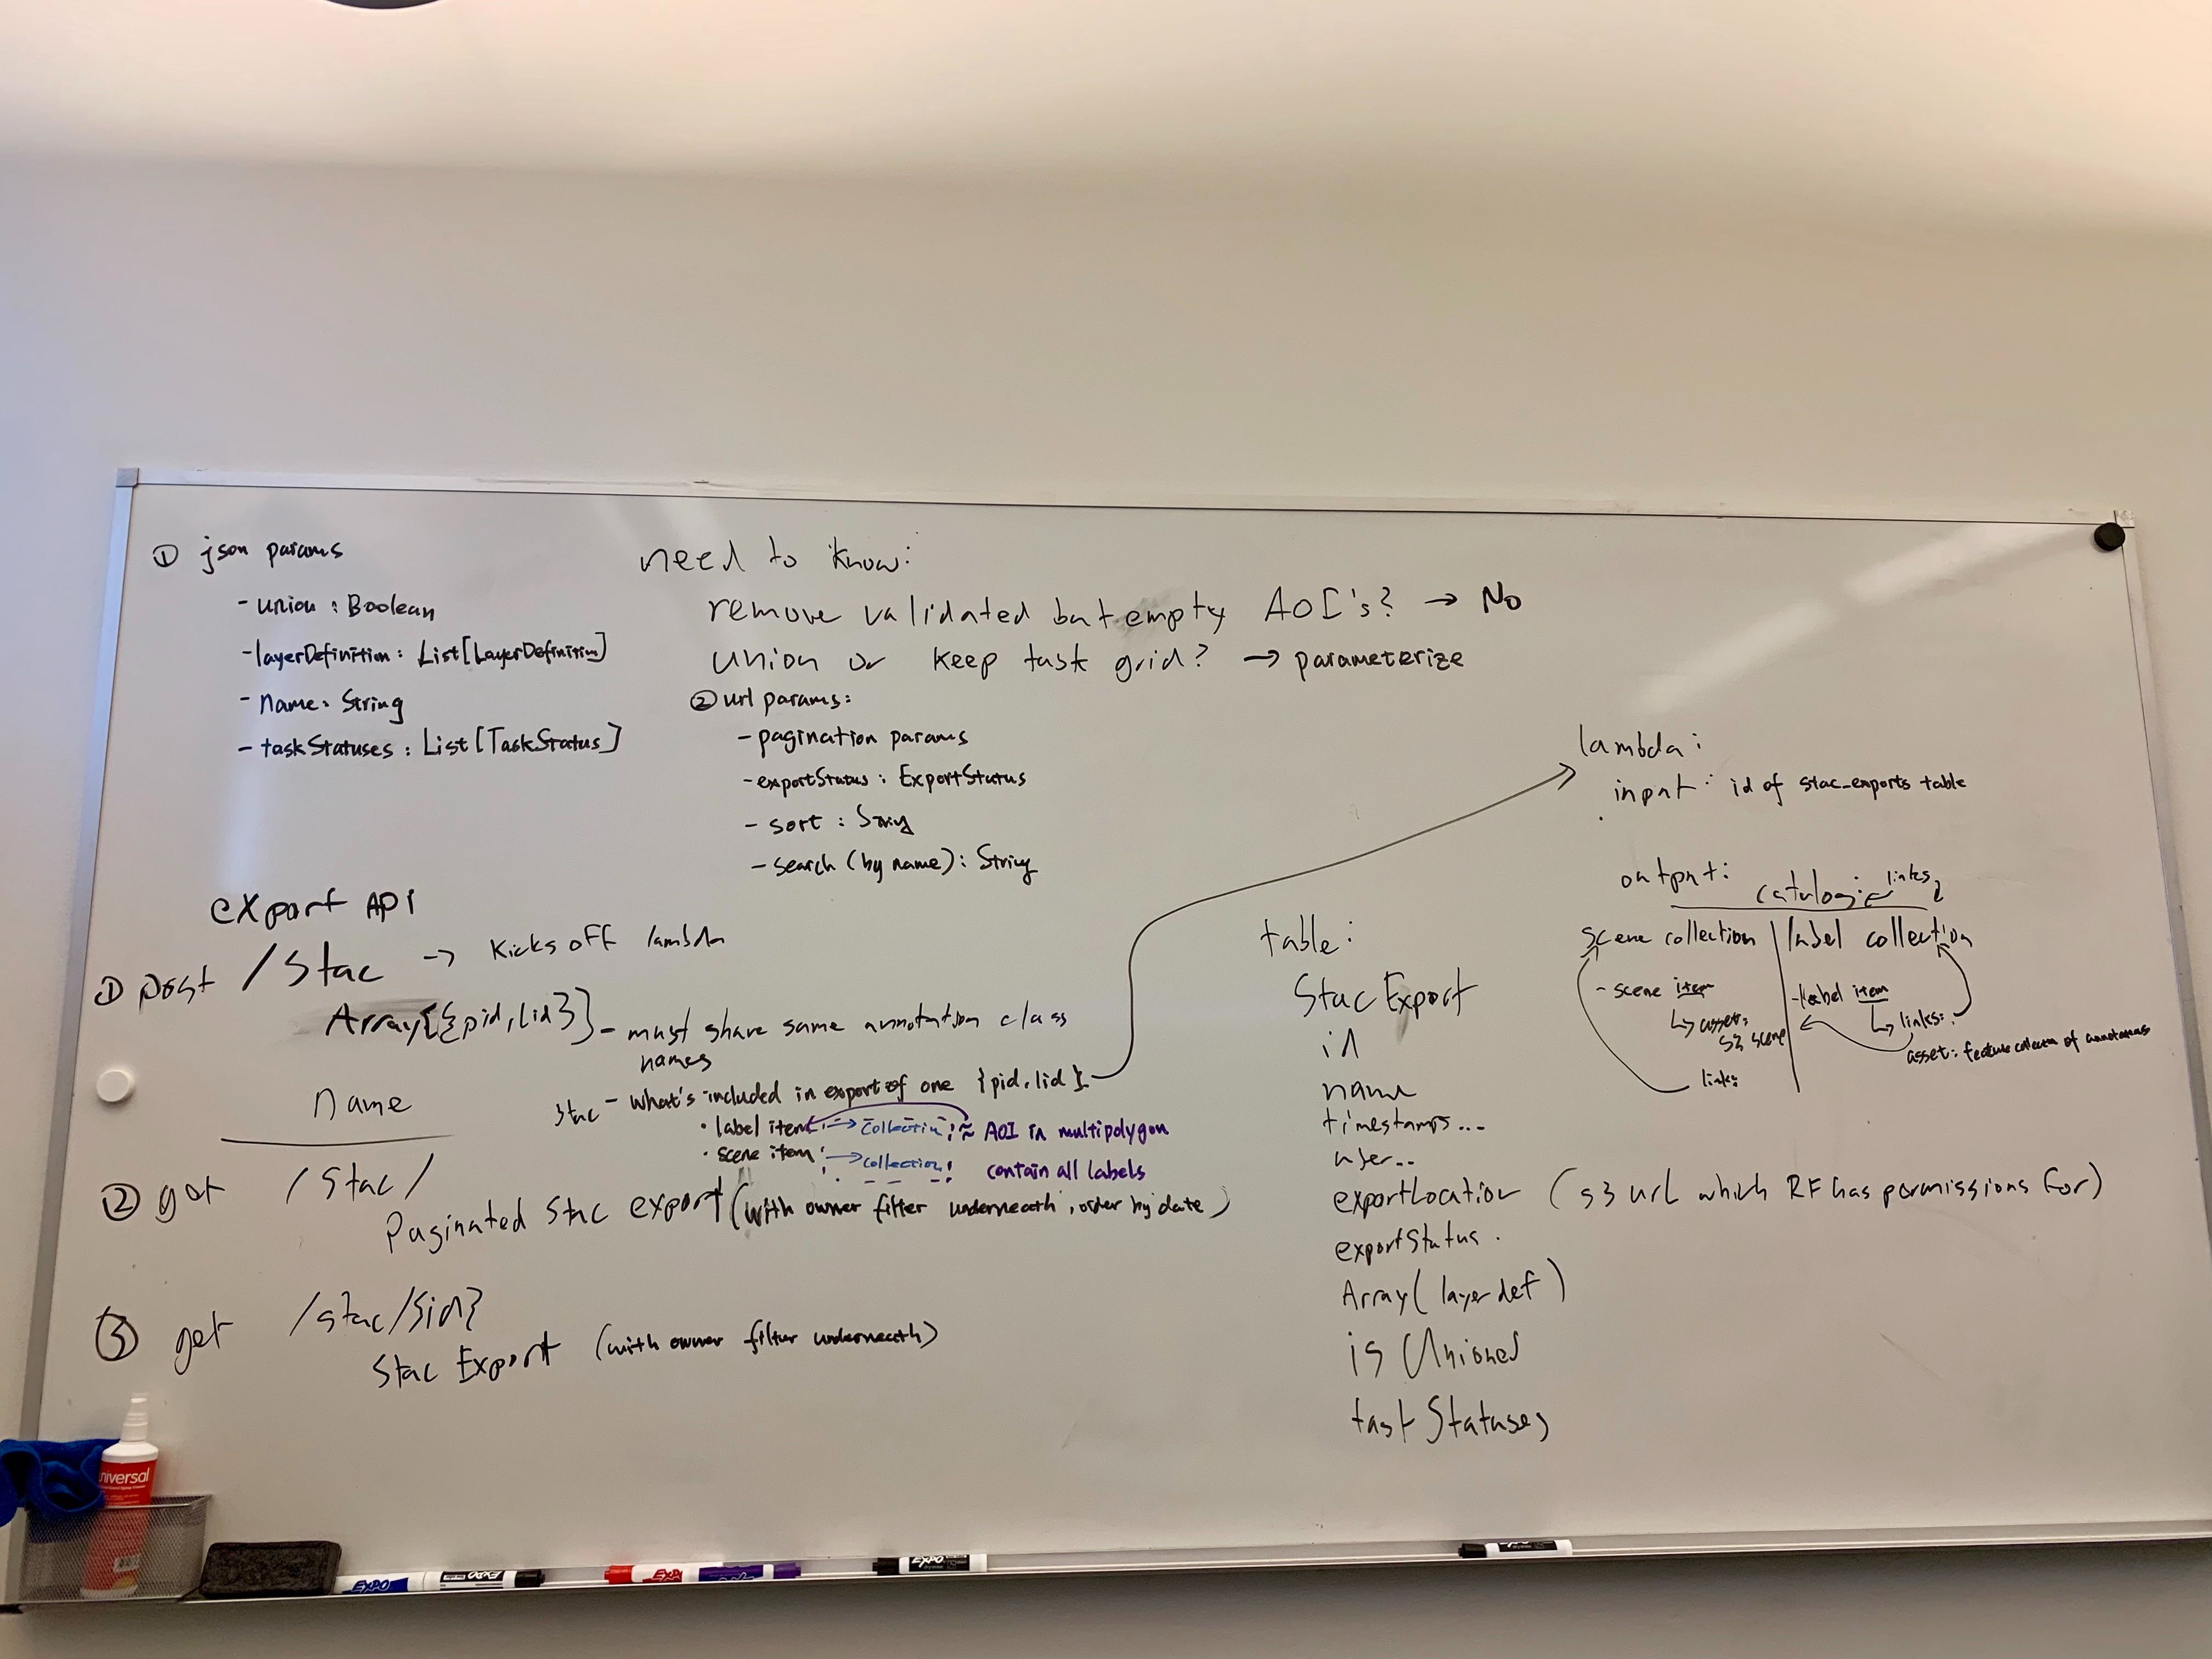 ① json params
- union : Boolean
- layerDefinition : List[LayerDefinition]
- name : String
- taskStatuses : List[TaskStatus]
need to know:
remove validated but empty AOI's? → No
union or keep task grid? → parameterize
② url params:
- pagination params
- exportStatus : ExportStatus
- sort : String
- search (by name) : String
export API
① post /stac → kicks off lambda
Array[{pid, lid}] - must share same annotation class
names
name
stac - what's included in export of one {pid, lid}
• label item → collection ≈ AOI in multipolygon
• scene item → collection contain all labels
② get /stac/
Paginated stac export (with owner filter underneath, order by date)
③ get /stac/{id}
Stac Export (with owner filter underneath)
table:
Stac Export
id
name
timestamps...
user..
exportLocation (s3 url which RF has permissions for)
exportStatus
Array(layer def)
is Unioned
task Statuses
lambda:
input: id of stac_exports table
output:
catalog links
scene collection | label collection
- scene item
↳ asset:
s3 scene
links
- label item
↳ links:
asset: feature collection of annotations
universal
EXPO
EXPO
EXPO
EXPO
EXPO